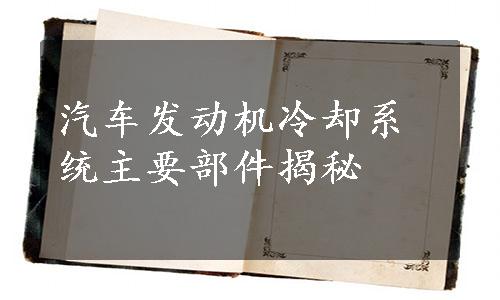 汽车发动机冷却系
统主要部件揭秘